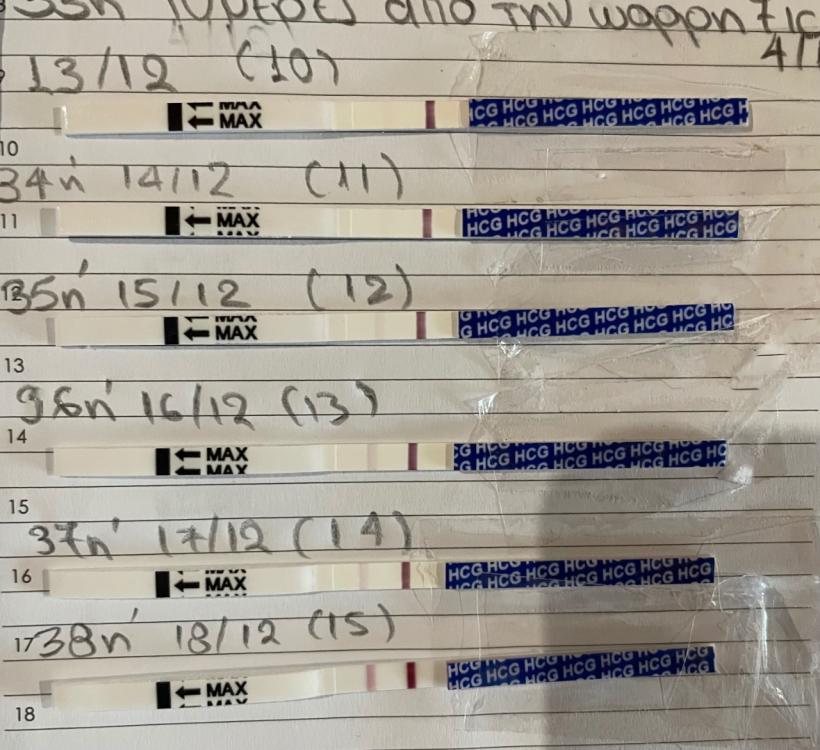 από την ωορρηξία
4/1
13/12 (10)
← MAX
← MAX
HCG HCG HCG HCG HCG HCG H
HCG HCG HCG HCG HCG HCG H
10
34η 14/12 (11)
11
← MAX
HCG HCG HCG HCG HCG HCG
HCG HCG HCG HCG HCG HCG
35η 15/12 (12)
MAX
← MAX
G HCG HCG HCG HCG HCG HCG
G HCG HCG HCG HCG HCG HC
13
36η 16/12 (13)
14
← MAX
← MAX
CG HCG HCG HCG HCG HCG HCG
G HCG HCG HCG HCG HCG HC
15
37η 17/12 (14)
16
← MAX
HCG HCG HCG HCG HCG HCG
HCG HCG HCG HCG HCG HCG
17
38η 18/12 (15)
← MAX
HCG HCG HCG HCG HCG HCG
HCG HCG HCG HCG HCG HCG
18